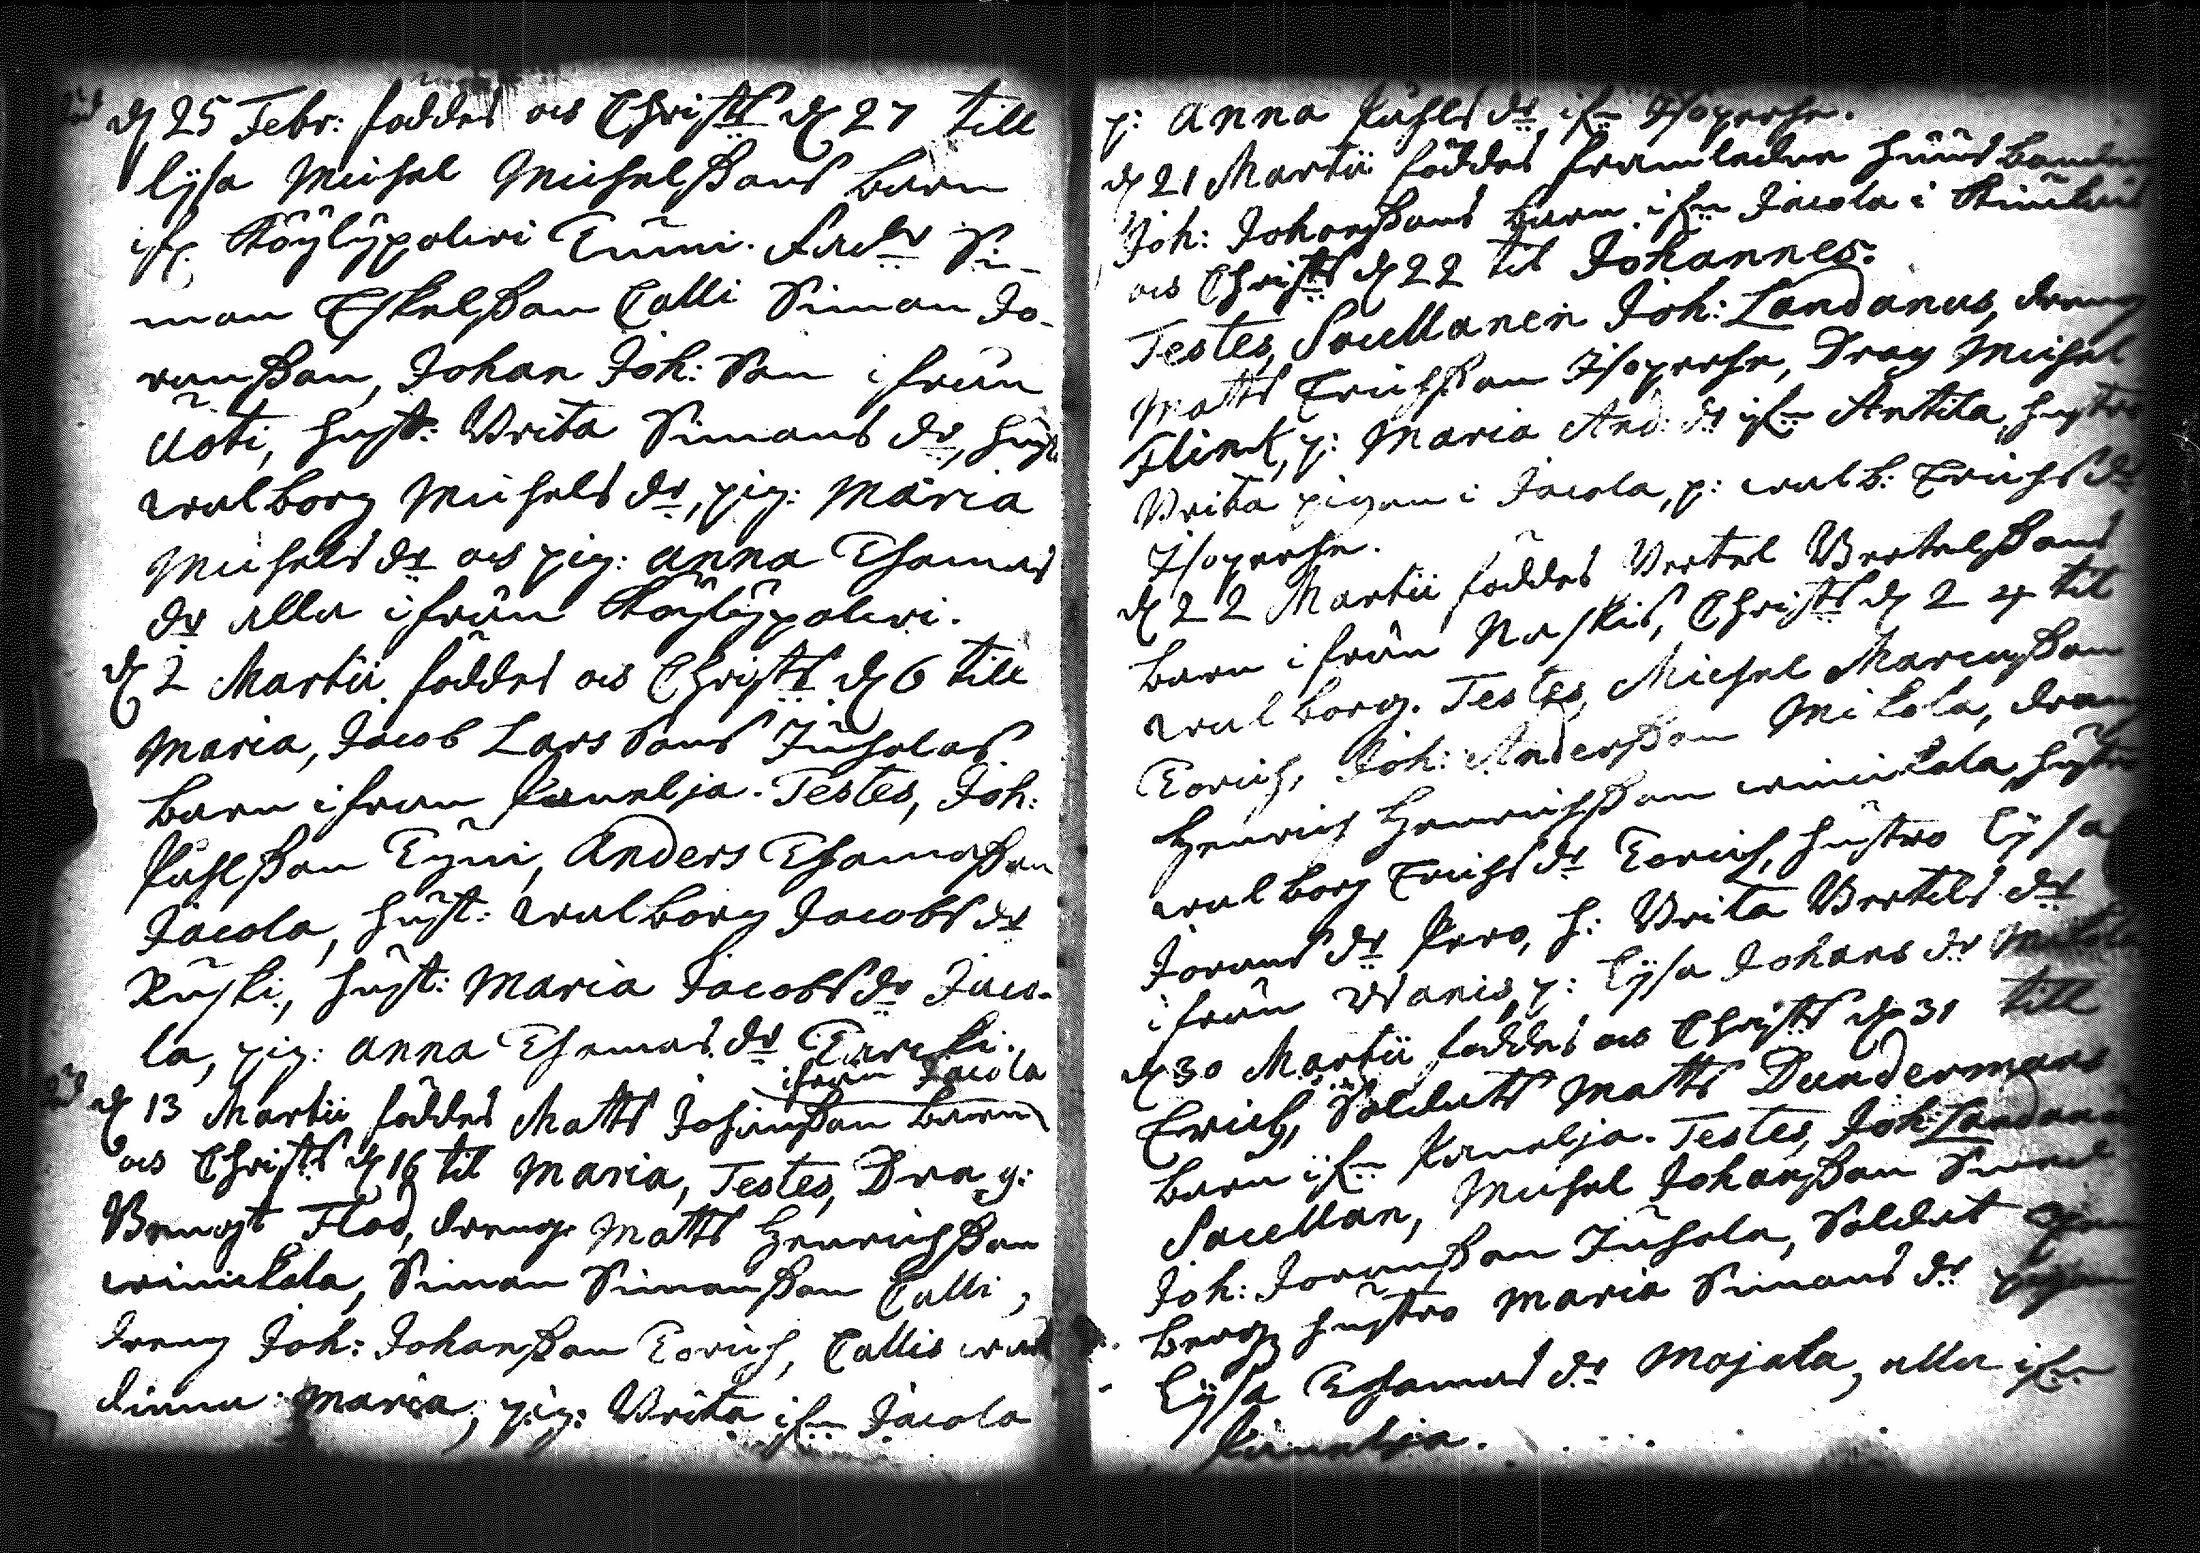 d 25 Febr: föddes och Christs d 27 till
Lysa Michel Michelssons barn
ifr. Köylypolwi Tumi. Fadr Si-
mon Eskelsson Calli Simon Jö-
ransson, Johan Joh: Son ifrån
Uoti, hust: Brita Simons dr, hust
Walborg Michels dr, pig: Maria
Michels dr och pig: Anna Thomas
dr alla ifrån Köylypolwi.
d 2 Martii föddes och Christs d 6 till
Maria, Jacob Lars Sons Juhalas
barn ifrån Kaunelja. Testes, Joh:
Påhlsson Tyni, Anders Thomasson
Jacola, hust: Walborg Jacobs dr
Ruski, hust: Maria Jacobs dr Jaco-
la, pig: Anna Thomas dr
ifrån Jacola
d 13 Martii föddes Matts Johansson barn
och Christs d 16 til Maria, Testes, Drag:
Bengt Flod, dreng Matts Henrichsson
Winickala, Simon Simonsson Calli,
dreng Joh: Johansson Eorich, Callis wär
dinna Maria, pig: Brita ifrn Jacola
p: Anna Påhls dr ifrn Isoperhe.
d 21 Martii föddes framledne huus
Joh: Johanssons barn ifrn Jacola i
och Christs d 22 til Johannes.
Testes, Sacellanen Joh: Landanus, dreng
Matts Erichsson Isoperhe, Drag Michel
Flink, p: Maria And: dr ifrn Antila, hustro
Brita pigan i Jacola, p: Walb: Erichs dr
Isoperhe.
d 22 Martii föddes Bertel Bertelssons
barn ifrån Raskis, Christs d 24 til
Walborg. Testes, Michel Marcusson
Eorich, Joh: Andersson Mikola, dreng
Henrich Henrichsson Winickala, hustro
Walborg Erichs dr Eorich, hustro Lysa
Jörans dr Pero, h: Brita Bertels dr
ifrån Wanis, p: Lysa Johans dr Mikola
d 30 Martii föddes och Christs d 31 till
Erich, Soldats Matts Dundermans
barn ifrn Kaunelja. Testes, Joh: Landanus
Sacellan, Michel Johansson
Joh: Joransson Juhala, Soldat
berg hustro Maria Simons dr pigan
Lysa Thomas dr Majala, alla ifrn
Kaunelja.